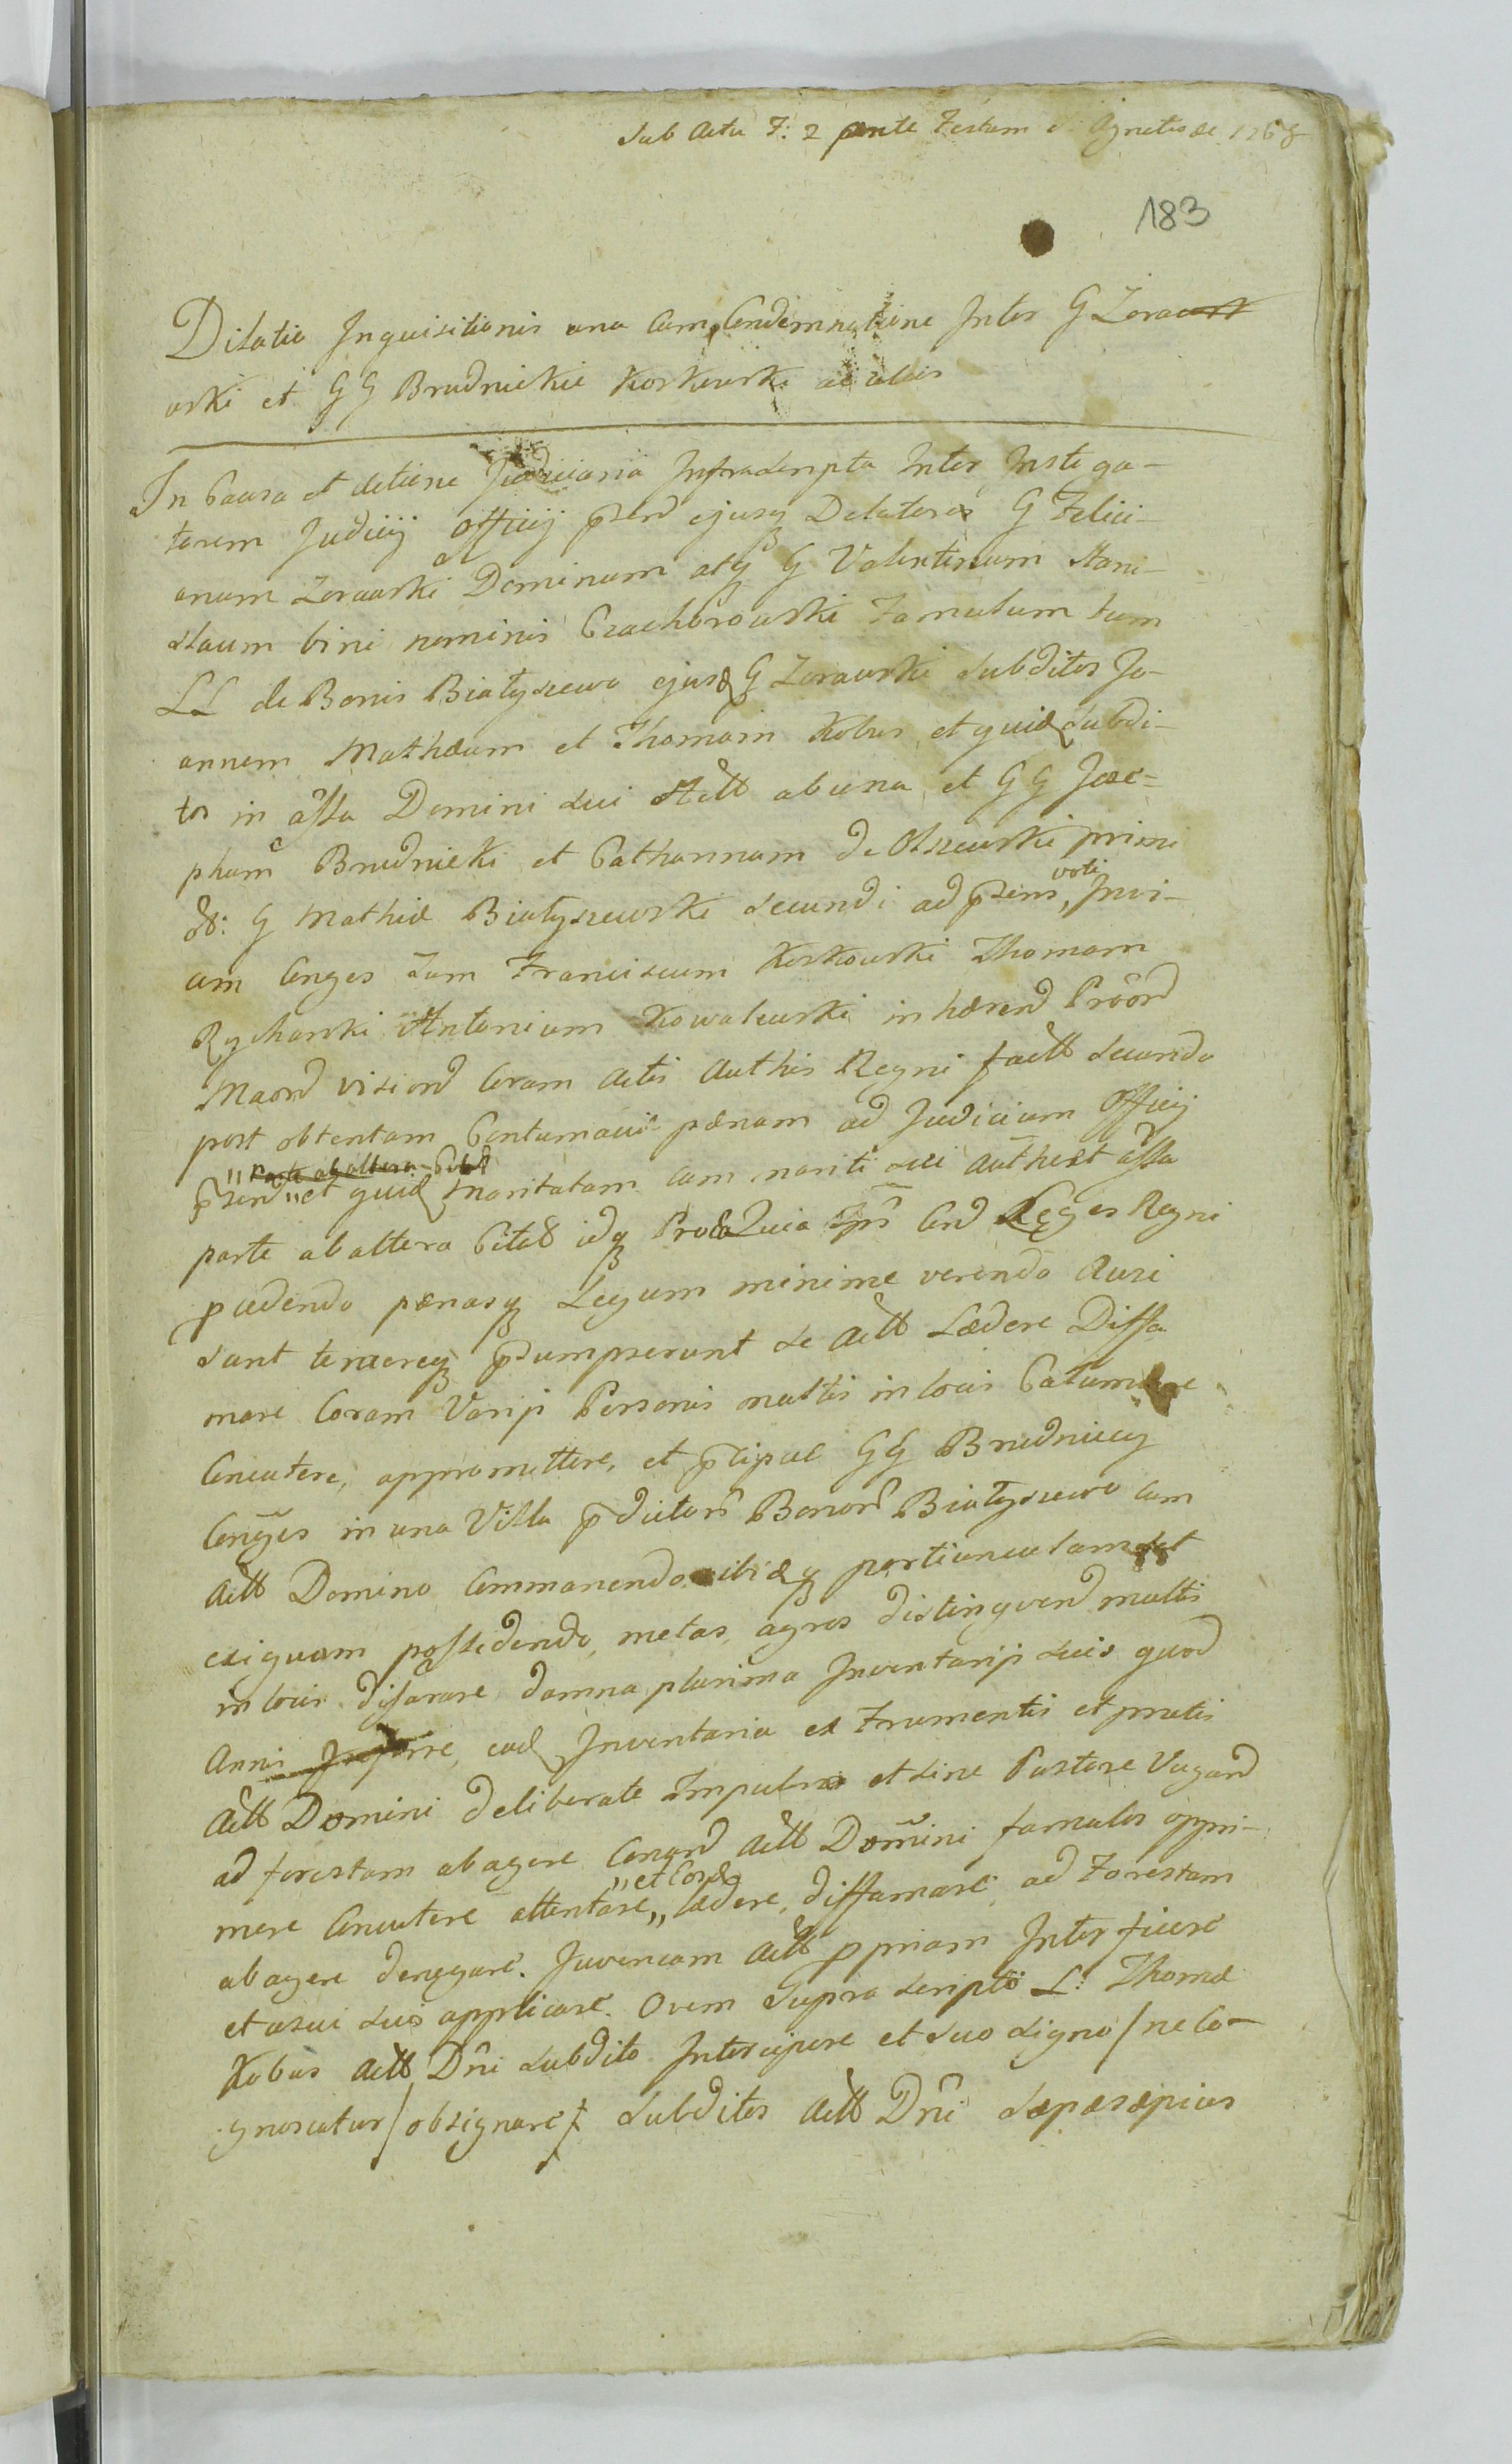 Sub Actu F: 2 ante Festum S. Agnetis de 1768
183
Dilatio Inquisitionis una Cum Condemnatione Inter G Zoraw
wski et GG Brudnickie Koskowski ac alios
In Causa et Actione Judiciaria Infrascripta Inter Instiga-
torem Judicij Officij prnd ejusq Delatores G Felici-
anum Zorawski Dominum atq G Valentinum Stani-
slaum bini nominis Czachorowski Famulum tum
LL de Bonis Białyszewo ejusd G Zorawski Subditos Jo-
annem Mathæum et Thomam Kobus et quid Subdi-
tos in assa Domini sui Actt ab una et GG Jose-
phum Brudnicki et Catharinam de Olszewskie primi
G Mathiæ Białyszewski secundi ad prsens voti, Invi-
cem Conges Tum Franciscum Koskowski Thomam
Rycharski Antonium Kowalewski inhærend Proord
Maord visiord Coram Actis Authis Regni factt secundo
post obtentam Contumaciæ pænam ad Judicium Officij
prsend „parte ab altera Citat „et quid maritatam cum mariti sui authest assa
parte ab altera Citat idq Proeo Quia Ipsi Cnd Leges Regni
pcedendo pænasq Legum minime verendo Ausi
sunt temereq prsumpserunt se Actt Lædere Diffa
mare Coram Varijs Personis multis in locis Calumniare
Concutere, appromittere, et prcipue GG Brudniccy
Conges in una Villa prdictor Bonor Białyszewo cum
Actt Domino Commanendo ibidq portiunculam
exiguam possidendo, metas, agros distingvend multis
in locis disarare damna plurima Inventarijs suis quod
Annis Inferre, ead Inventaria ex Frumentis et pratis
Actt Domini deliberate Impulsa et sine Pastore Vagand
ad forestam abagere Conand Actt Domini famulos oppri-
mere Concutere attentare, „et Cord lædere, diffamare, ad Forestam
abagere denegare. Juvencam Actt ppriam Interficere
et usui suo applicare. Ovem Supra scripto L: Thomæ
Kobus Actt Dni Subdito Intercipere et suo signo / ne co-
gnoscatur / obsignare, Subditos Actt Dni sæpæsæpius